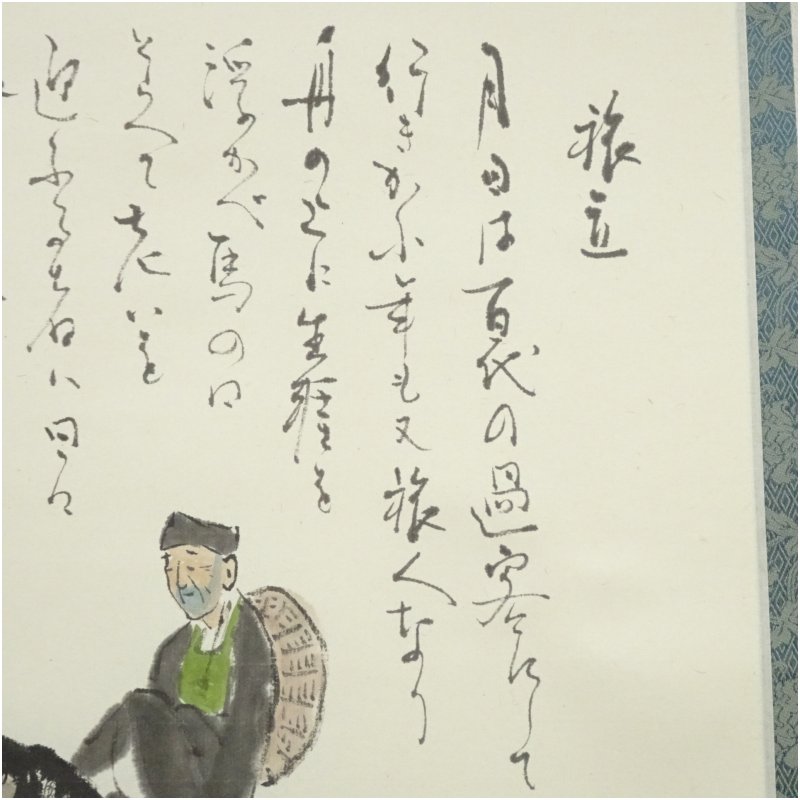 旅立
月日は百代の過客にして
行きかふ年も又旅人なり
舟の上に生涯を
浮かべ馬の口
とらへて老いを
迎ふる者は日々